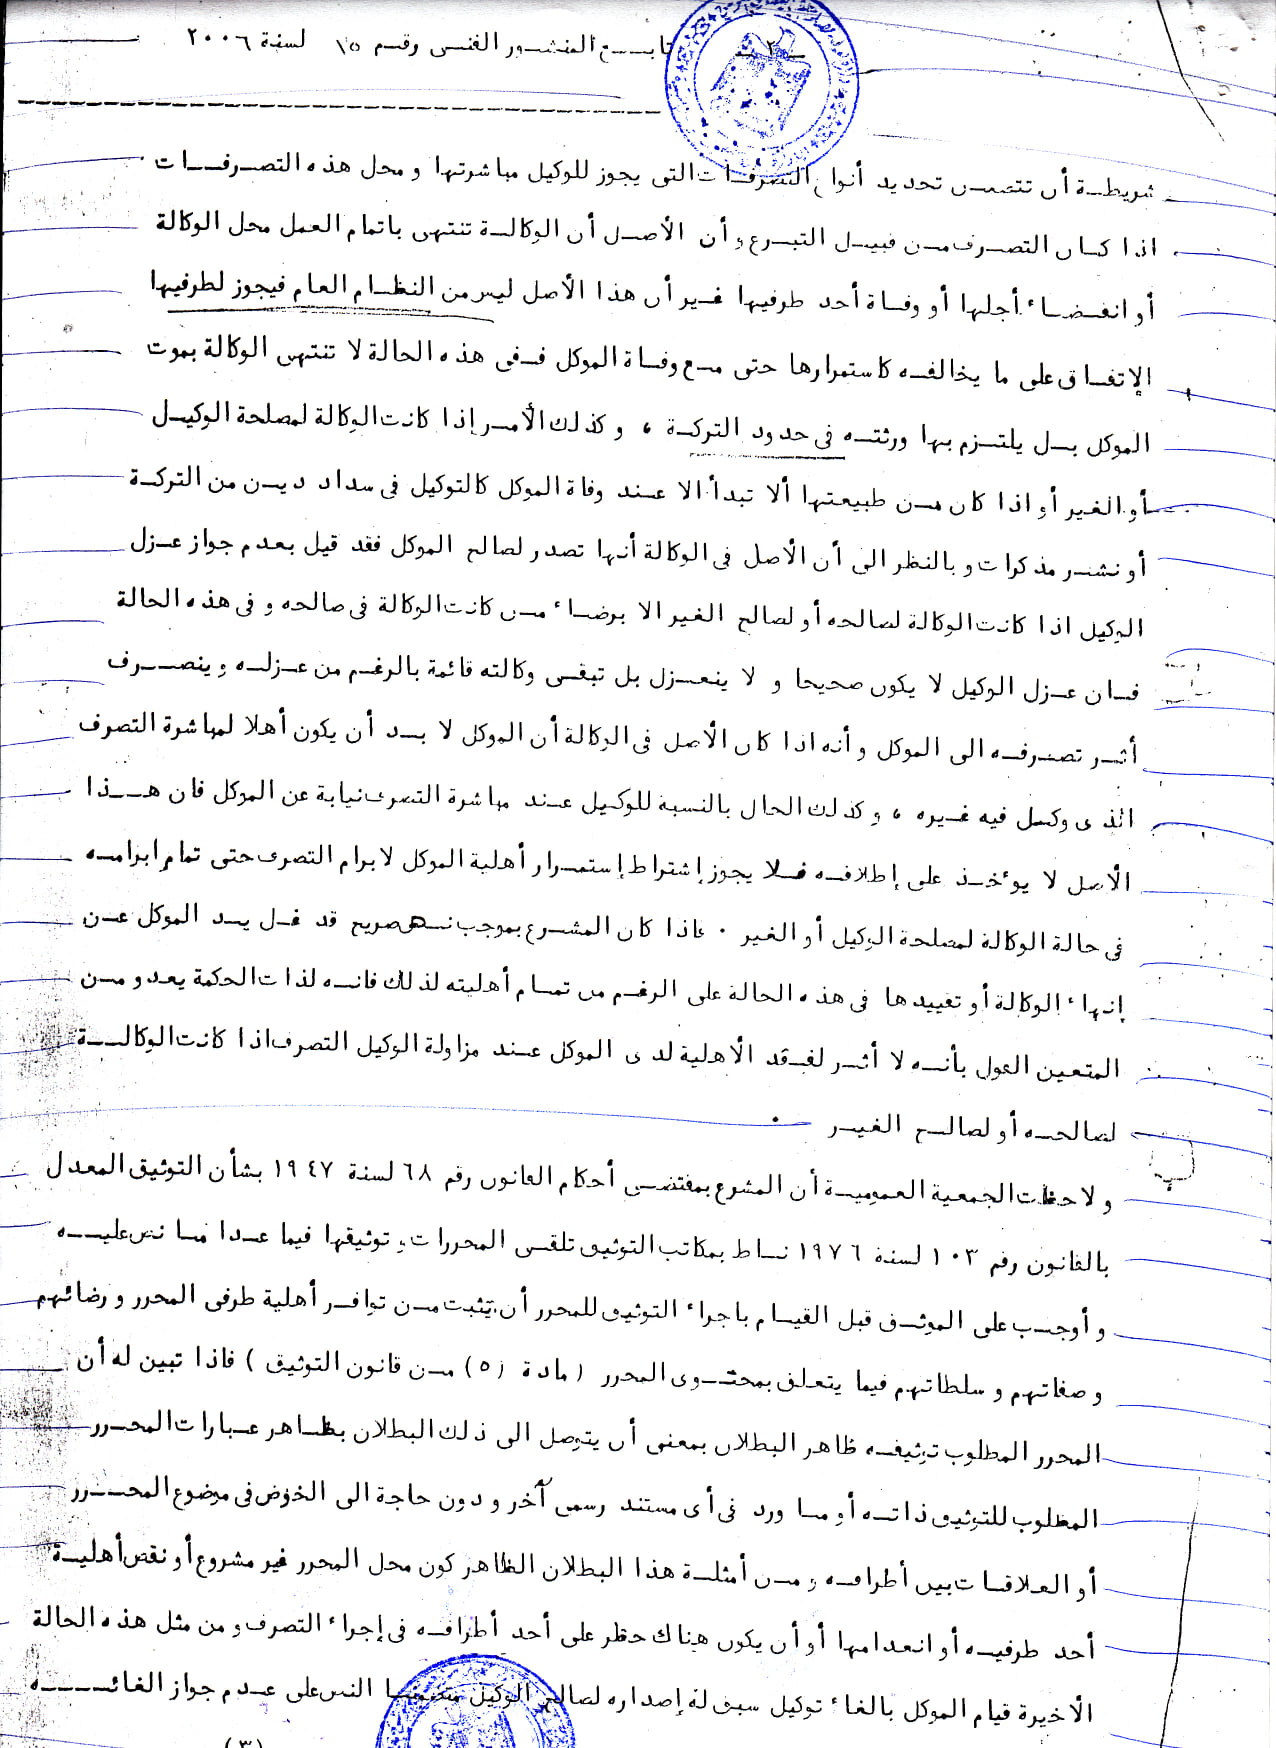 - ٢ -
تابع المنشور الفنى رقم ١٥ لسنة ٢٠٠٦
شريطة أن تتضمن تحديد أنواع التصرفات التى يجوز للوكيل مباشرتها و محل هذه التصرفات
اذا كان التصرف من قبيل التبرع و أن الأصل أن الوكالة تنتهى باتمام العمل محل الوكالة
أو انقضاء أجلها أو وفاة أحد طرفيها غير أن هذا الأصل ليس من النظام العام فيجوز لطرفيها
الإتفاق على ما يخالفه كاستمرارها حتى مع وفاة الموكل ففى هذه الحالة لا تنتهى الوكالة بموت
الموكل بل يلتزم بها ورثته فى حدود التركة ، و كذلك الأمر إذا كانت الوكالة لمصلحة الوكيل
أو الغير أو اذا كان من طبيعتها ألا تبدأ الا عند وفاة الموكل كالتوكيل فى سداد دين من التركة
أو نشر مذكرات و بالنظر الى أن الأصل فى الوكالة أنها تصدر لصالح الموكل فقد قيل بعدم جواز عزل
الوكيل اذا كانت الوكالة لصالحه أو لصالح الغير الا برضاء من كانت الوكالة فى صالحه و فى هذه الحالة
فان عزل الوكيل لا يكون صحيحا و لا ينعزل بل تبقى وكالته قائمة بالرغم من عزله و ينصرف
أثر تصرفه الى الموكل و أنه اذا كان الأصل فى الوكالة أن الموكل لا بد أن يكون أهلا لمباشرة التصرف
الذى وكل فيه غيره ، و كذلك الحال بالنسبة للوكيل عند مباشرة التصرف نيابة عن الموكل فان هذا
الأصل لا يؤخذ على إطلاقه فلا يجوز إشتراط إستمرار أهلية الموكل لابرام التصرف حتى تمام ابرامه
فى حالة الوكالة لمصلحة الوكيل أو الغير . فاذا كان المشرع بموجب نص صريح قد غل يد الموكل عن
إنهاء الوكالة أو تقييدها فى هذه الحالة على الرغم من تمام أهليته لذلك فانه لذات الحكمة يعدو من
المتعين القول بأنه لا أثر لفقد الأهلية لدى الموكل عند مزاولة الوكيل التصرف اذا كانت الوكالة
لصالحه أو لصالح الغير .
و لاحظت الجمعية العمومية أن المشرع بمقتضى أحكام القانون رقم ٦٨ لسنة ١٩٤٧ بشأن التوثيق المعدل
بالقانون رقم ١٠٣ لسنة ١٩٧٦ ناط بمكاتب التوثيق تلقى المحررات و توثيقها فيما عدا ما نص عليه
و أوجب على الموثق قبل القيام باجراء التوثيق للمحرر أن يتثبت من توافر أهلية طرفى المحرر و رضائهم
و صفاتهم و سلطاتهم فيما يتعلق بمحتوى المحرر ( مادة (٥) من قانون التوثيق ) فاذا تبين له أن
المحرر المطلوب توثيقه ظاهر البطلان بمعنى أن يتوصل الى ذلك البطلان بظاهر عبارات المحرر
المطلوب للتوثيق ذاته أو ما ورد فى أى مستند رسمى آخر و دون حاجة الى الخوض فى موضوع المحرر
أو العلاقات بين أطرافه و من أمثلة هذا البطلان الظاهر كون محل المحرر غير مشروع أو نقص أهلية
أحد طرفيه أو انعدامها أو أن يكون هناك حظر على أحد أطرافه فى إجراء التصرف و من مثل هذه الحالة
الأخيرة قيام الموكل بالغاء توكيل سبق له إصداره لصالح الوكيل متضمنا النص على عدم جواز الغائه
(٣)